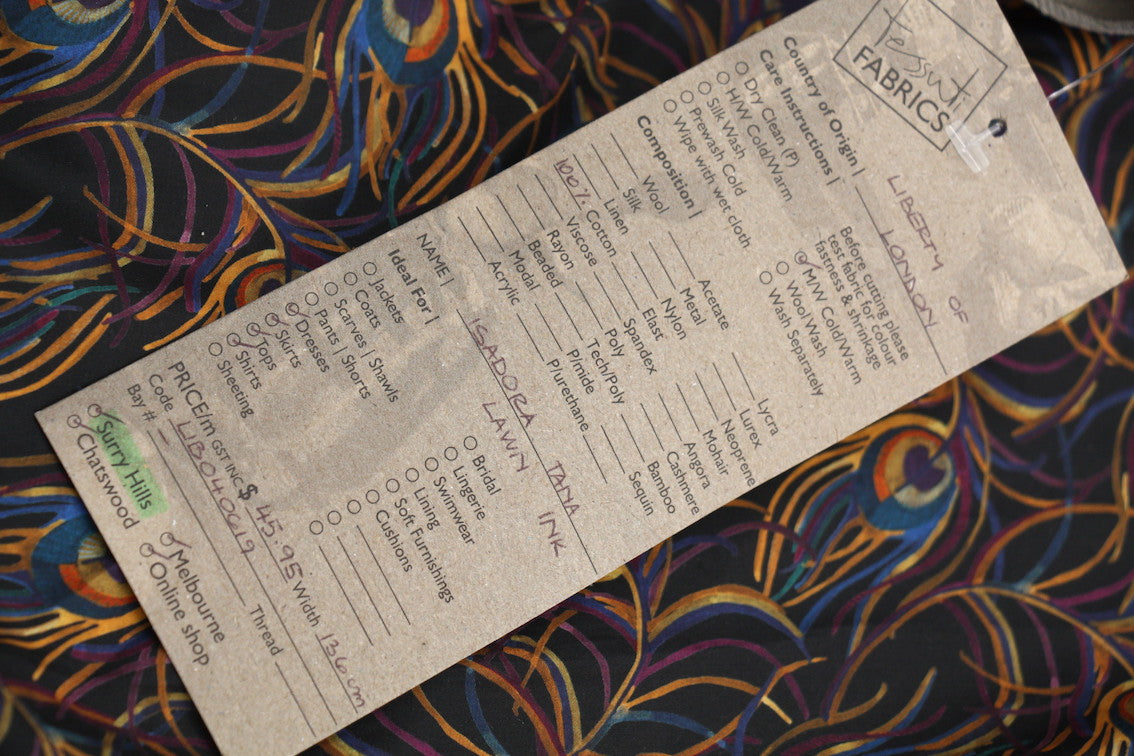 Tessuti
FABRICS
Country of Origin |
LIBERTY OF
LONDON
Care Instructions |
Dry Clean (P)
H/W Cold/Warm
Silk Wash
Prewash Cold
Wipe with wet cloth
Before cutting please
test fabric for colour
fastness & shrinkage
M/W Cold/Warm
Wool Wash
Wash Separately
Composition |
Wool
Silk
Linen
100% Cotton
Viscose
Rayon
Beaded
Modal
Acrylic
Acetate
Metal
Nylon
Elast
Spandex
Poly
Tech/Poly
P/mide
P/urethane
Lycra
Lurex
Neoprene
Mohair
Angora
Cashmere
Bamboo
Sequin
NAME | 'ISADORA TANA
LAWN INK
Ideal For |
Jackets
Coats
Scarves | Shawls
Pants | Shorts
Dresses
Skirts
Tops
Shirts
Sheeting
Bridal
Lingerie
Swimwear
Lining
Soft Furnishings
Cushions
PRICE/m GST INC $ 45.95 Width 136cm
Code LIB040619 Thread
Bay # -
Surry Hills
Chatswood
Melbourne
Online shop